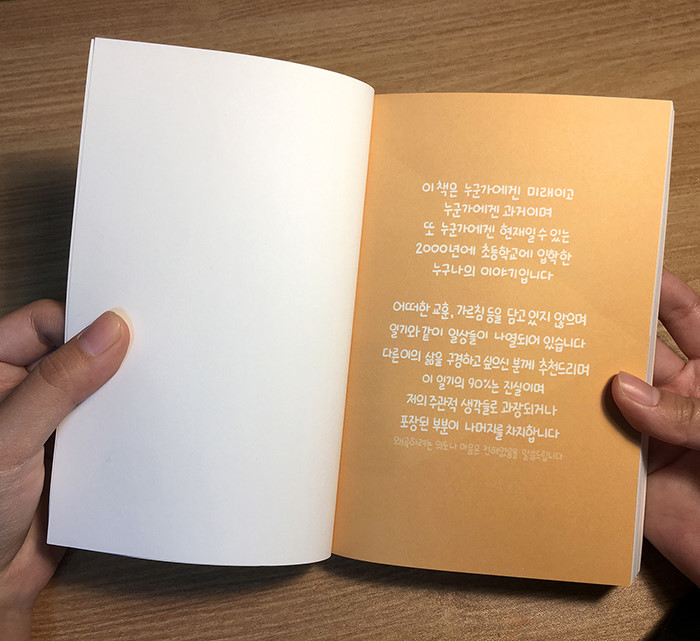 이 책은 누군가에겐 미래이고
누군가에겐 과거이며
또 누군가에겐 현재일 수 있는
2000년에 초등학교에 입학한
누구나의 이야기입니다
어떠한 교훈, 가르침 등을 담고 있지 않으며
일기와 같이 일상들이 나열되어 있습니다
다른 이의 삶을 구경하고 싶으신 분께 추천드리며
이 일기의 90%는 진실이며
저의 주관적 생각들로 과장되거나
포장된 부분이 나머지를 차지합니다
왜곡하려는 의도나 마음은 전혀 없음을 말씀드립니다